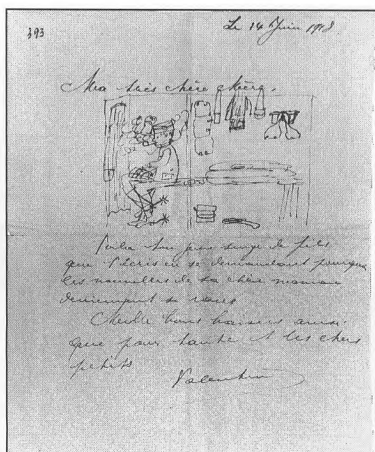 393
Le 14 Juin 1918
Ma très chère Mère.
Voilà ton pauv singe de fils
que t'écris en se demandant pourquoi
les nouvelles de sa chère maman
deviennent si rares
Meilleurs bons baisers ainsi
que pour tante et les chers
petits
Valentin